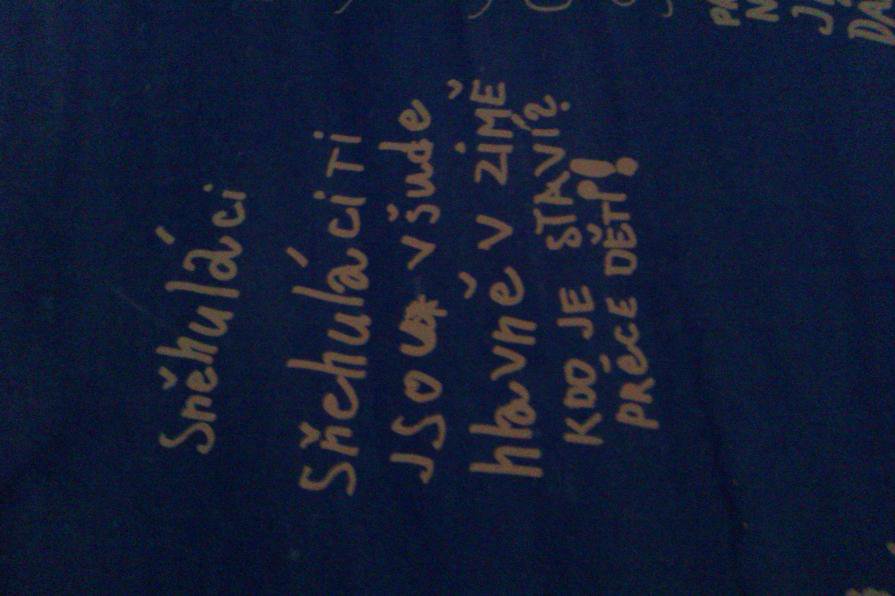 Sněhuláci
Sňehuláci Ti
JSOU všude
hlavně v ZiMĚ
KDO JE STAVÍ?
PRÉCE DĚTI!